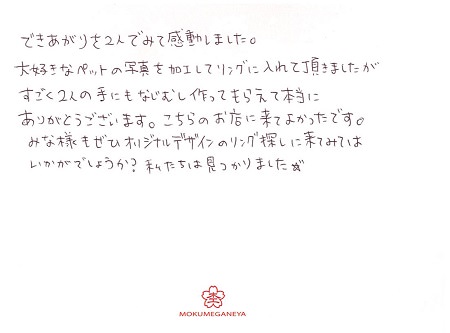 できあがりを2人でみて感動しました。
大好きなペットの写真を加工してリングに入れて頂きましたが
すごく2人の手にもなじむし作ってもらえて本当に
ありがとうございます。こちらのお店に来てよかったです。
みな様もぜひオリジナルデザインのリング探しに来てみては
いかがでしょうか?私たちは見つかりました☆
杢
MOKUMEGANEYA